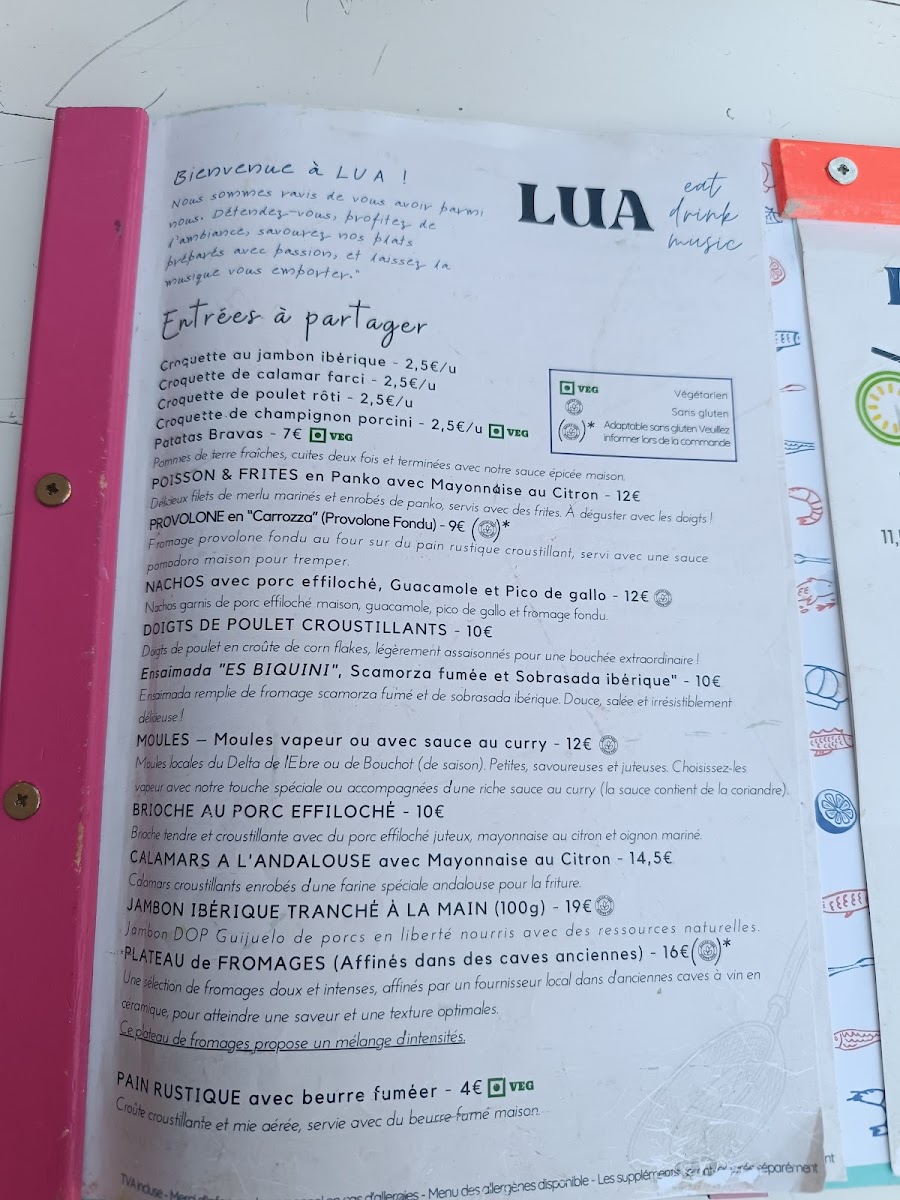 Bienvenue à LUA !
Nous sommes ravis de vous avoir parmi
nous. Détendez-vous, profitez de
l'ambiance, savourez nos plats
préparés avec passion, et laissez la
musique vous emporter."
LUA
eat
drink
music
Entrées à partager
Croquette au jambon ibérique - 2,5€/u
Croquette de calamar farci - 2,5€/u
Croquette de poulet rôti - 2,5€/u
Croquette de champignon porcini - 2,5€/u VEG
Patatas Bravas - 7€ VEG
Pommes de terre fraîches, cuites deux fois et terminées avec notre sauce épicée maison.
VEG Végétarien
Sans gluten
* Adaptable sans gluten Veuillez
informer lors de la commande
POISSON & FRITES en Panko avec Mayonnaise au Citron - 12€
Délicieux filets de merlu marinés et enrobés de panko, servis avec des frites. À déguster avec les doigts !
PROVOLONE en "Carrozza" (Provolone Fondu) - 9€ ( )*
Fromage provolone fondu au four sur du pain rustique croustillant, servi avec une sauce
pomodoro maison pour tremper.
NACHOS avec porc effiloché, Guacamole et Pico de gallo - 12€
Nachos garnis de porc effiloché maison, guacamole, pico de gallo et fromage fondu.
DOIGTS DE POULET CROUSTILLANTS - 10€
Doigts de poulet en croûte de corn flakes, légèrement assaisonnés pour une bouchée extraordinaire !
Ensaimada "ES BIQUINI", Scamorza fumée et Sobrasada ibérique" - 10€
Ensaimada remplie de fromage scamorza fumé et de sobrasada ibérique. Douce, salée et irrésistiblement
délicieuse !
MOULES – Moules vapeur ou avec sauce au curry - 12€
Moules locales du Delta de l'Ebre ou de Bouchot (de saison). Petites, savoureuses et juteuses. Choisissez-les
vapeur avec notre touche spéciale ou accompagnées d'une riche sauce au curry (la sauce contient de la coriandre).
BRIOCHE AU PORC EFFILOCHÉ - 10€
Brioche tendre et croustillante avec du porc effiloché juteux, mayonnaise au citron et oignon mariné.
CALAMARS A L'ANDALOUSE avec Mayonnaise au Citron - 14,5€
Calamars croustillants enrobés d'une farine spéciale andalouse pour la friture.
JAMBON IBÉRIQUE TRANCHÉ À LA MAIN (100g) - 19€
Jambon DOP Guijuelo de porcs en liberté nourris avec des ressources naturelles.
PLATEAU de FROMAGES (Affinés dans des caves anciennes) - 16€( )*
Une sélection de fromages doux et intenses, affinés par un fournisseur local dans d'anciennes caves à vin en
céramique, pour atteindre une saveur et une texture optimales.
Ce plateau de fromages propose un mélange d'intensités.
PAIN RUSTIQUE avec beurre fuméer - 4€ VEG
Croûte croustillante et mie aérée, servie avec du beurre fumé maison.
TVA incluse - d'allergies - Menu des allergènes disponible - Les suppléments séparément